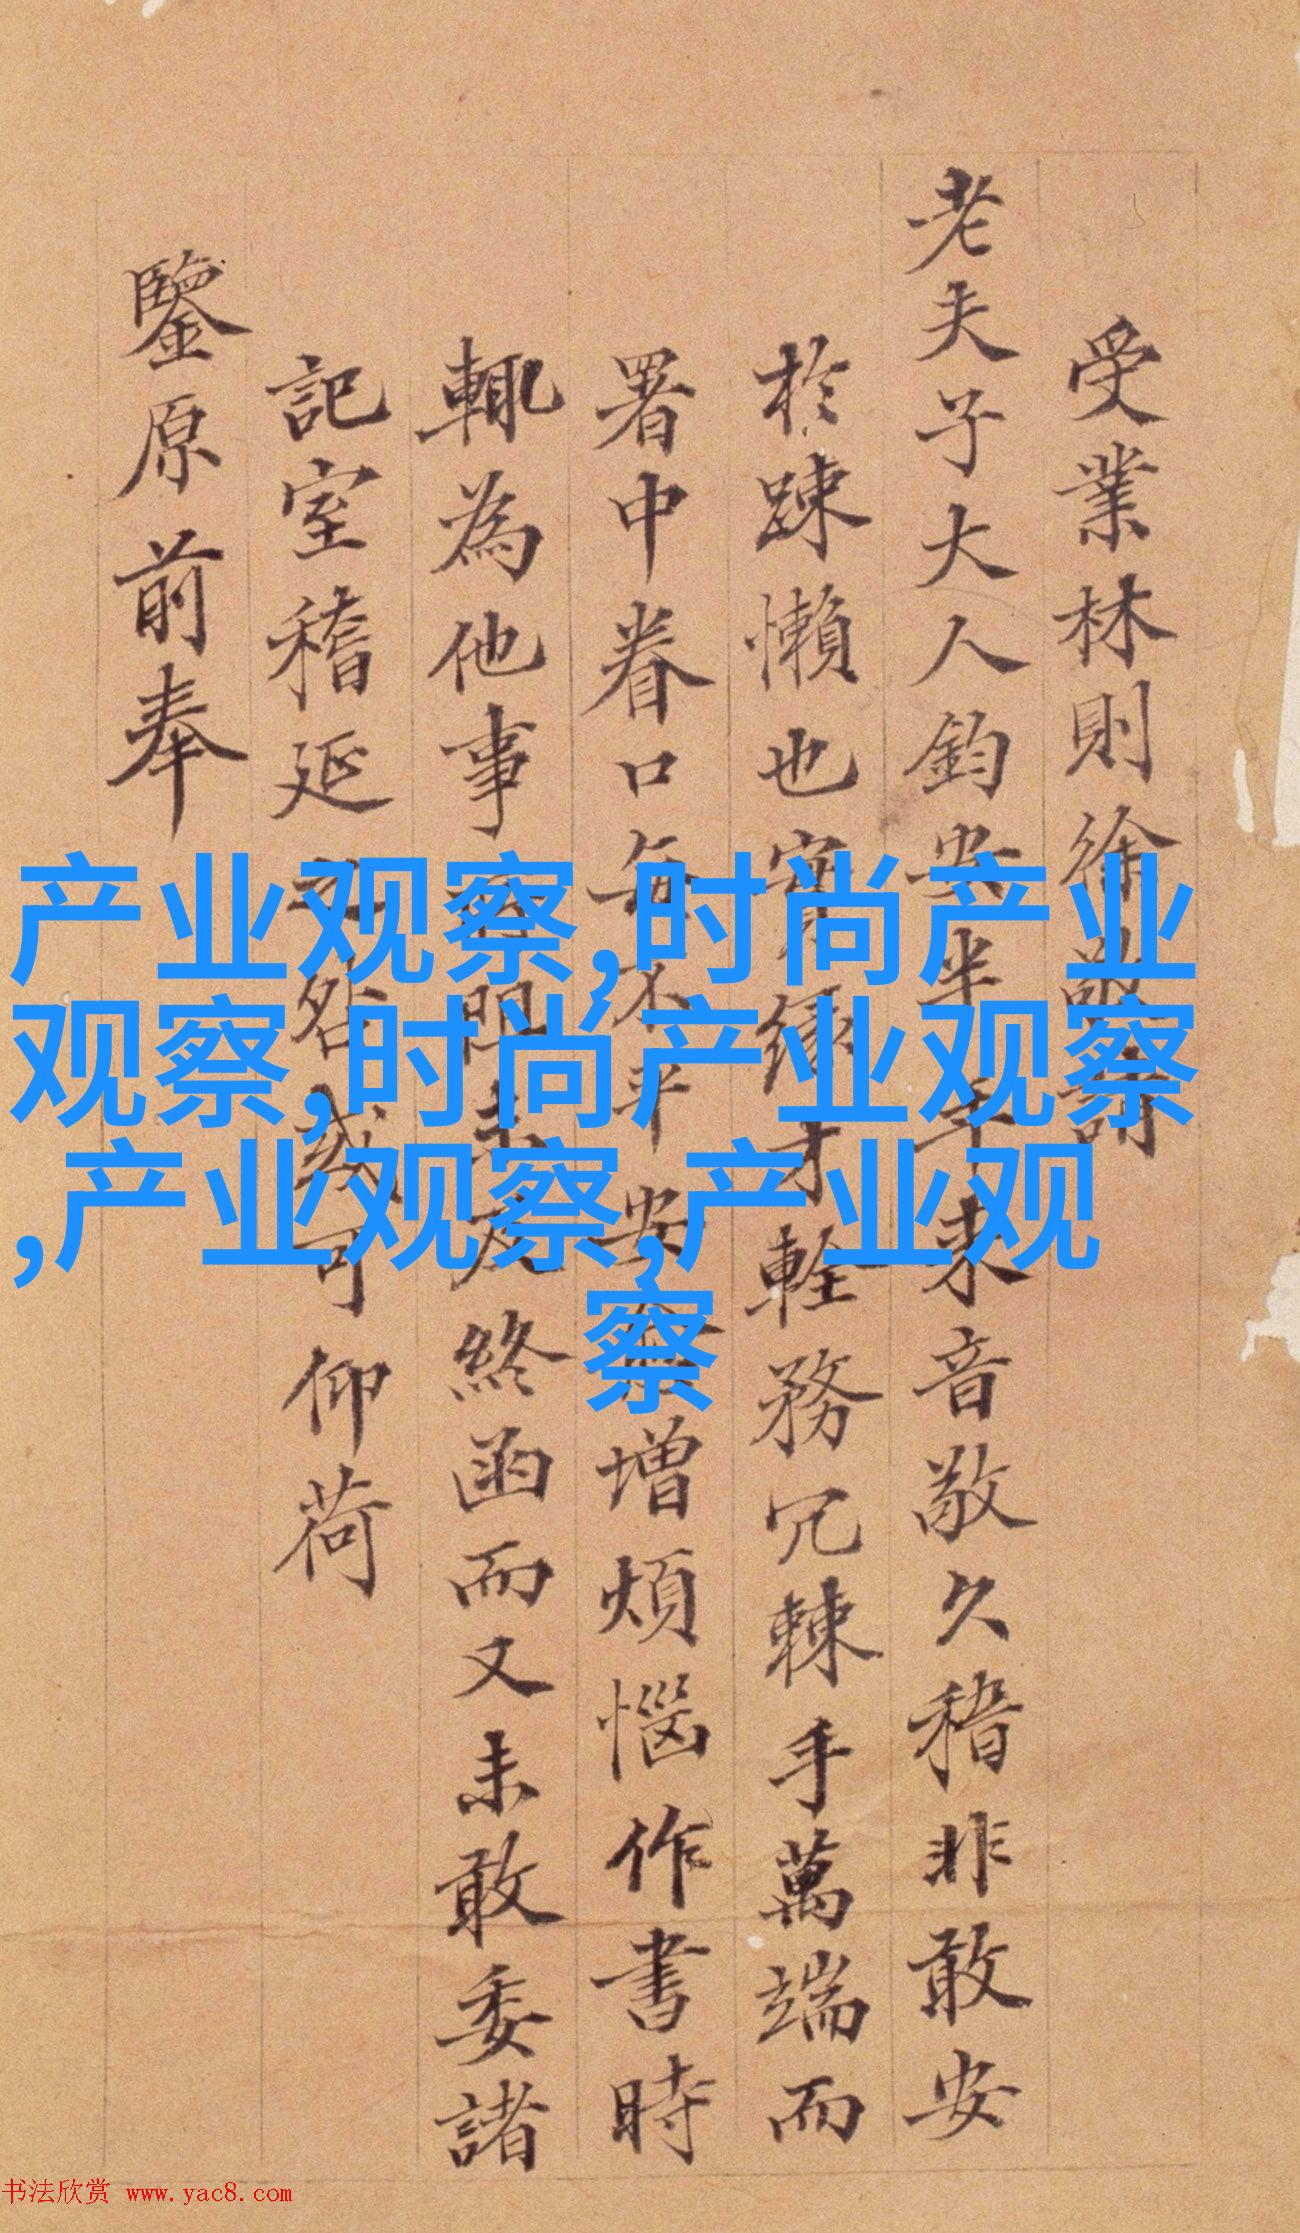 受業林則徐敬請
老夫子大人鈞安半年來音敬久稽非敢安
於踈懶也實緣才輇務冗棘手萬端而
署中眷口每不平安益增煩惱作書時
輒為他事所阻未及終函而又未敢委諸
記室稽延之咎或可仰荷
鑒原前奉
产业观察,时尚产业
观察,时尚产业观察
,产业观察,产业观
察
书法欣赏 www.yac8.com